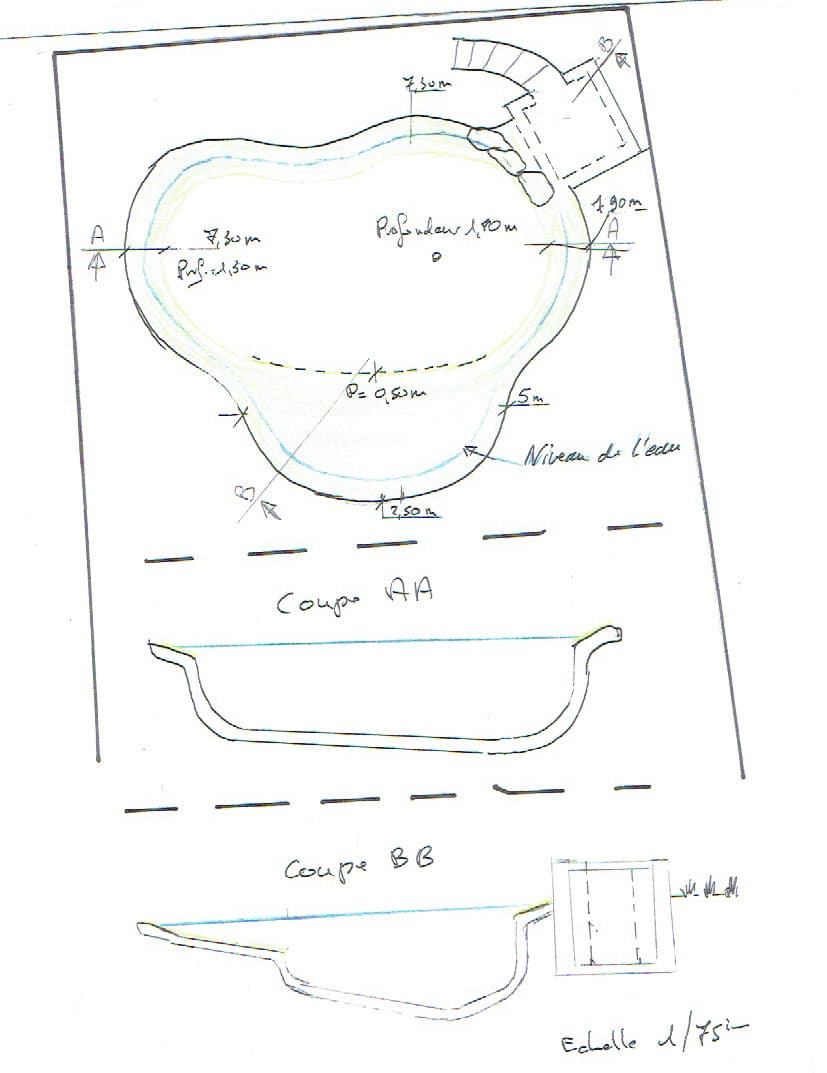 B
7,30m
1,90m
A
A
7,30m
Prof.=1,30m
Profondeur 1,80m
P= 0,50m
5m
Niveau de l'eau
B
2,50m
Coupe AA
Coupe BB
Echelle 1/75è